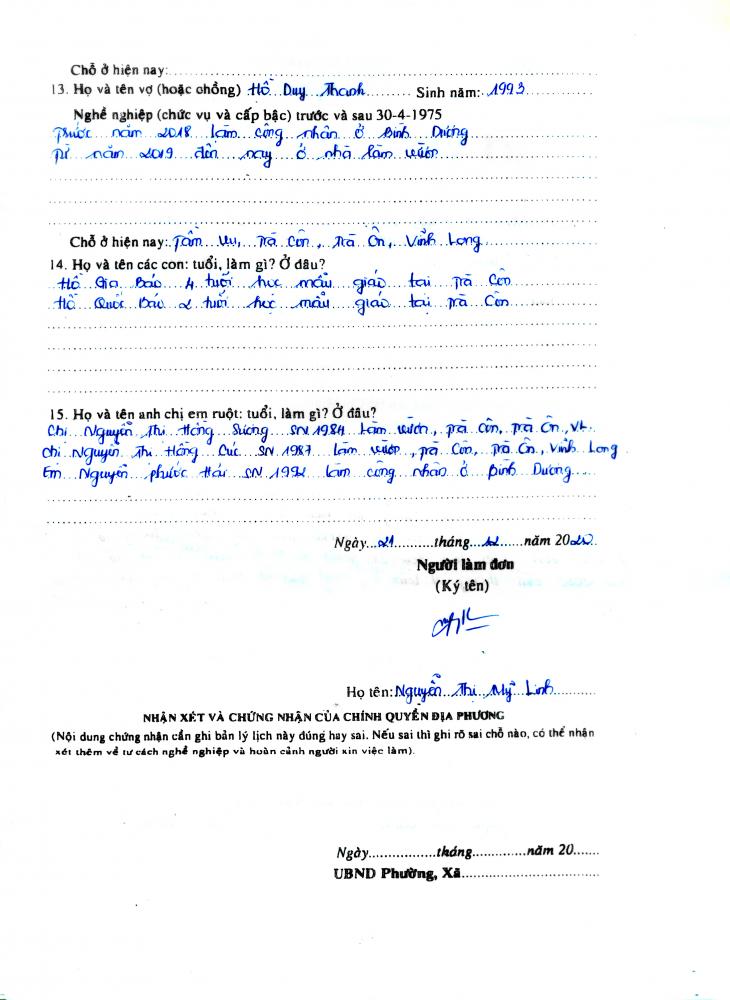 Chỗ ở hiện nay:
13. Họ và tên vợ (hoặc chồng) Hồ Duy Thanh Sinh năm: 1993
Nghề nghiệp (chức vụ và cấp bậc) trước và sau 30-4-1975
Trước năm 2018 làm công nhân ở Bình Dương
Từ năm 2019 đến nay ở nhà làm vườn
Chỗ ở hiện nay: Vụ, Trà Côn, Trà Ôn, Vĩnh Long
14. Họ và tên các con: tuổi, làm gì? Ở đâu?
Hồ Gia Bảo 4 tuổi học mẫu giáo tại Trà Côn
Hồ Quốc Bảo 2 tuổi học mẫu giáo tại Trà Côn
15. Họ và tên anh chị em ruột: tuổi, làm gì? Ở đâu?
Chị Nguyễn Thị Hồng Sương SN 1984 Làm vườn, Trà Côn, Trà Ôn, VL.
Chị Nguyễn Thị Hồng Cúc SN 1987 làm vườn, Trà Côn, Trà Ôn, Vĩnh Long
Em Nguyễn Phước Hải SN 1992 làm công nhân ở Bình Dương
Ngày 21 tháng 12 năm 2020
Người làm đơn
(Ký tên)
Họ tên: Nguyễn Thị Mỹ Linh
NHẬN XÉT VÀ CHỨNG NHẬN CỦA CHÍNH QUYỀN ĐỊA PHƯƠNG
(Nội dung chứng nhận cần ghi bản lý lịch này đúng hay sai. Nếu sai thì ghi rõ sai chỗ nào, có thể nhận
xét thêm về tư cách nghề nghiệp và hoàn cảnh người xin việc làm).
Ngày tháng năm 20
UBND Phường, Xã